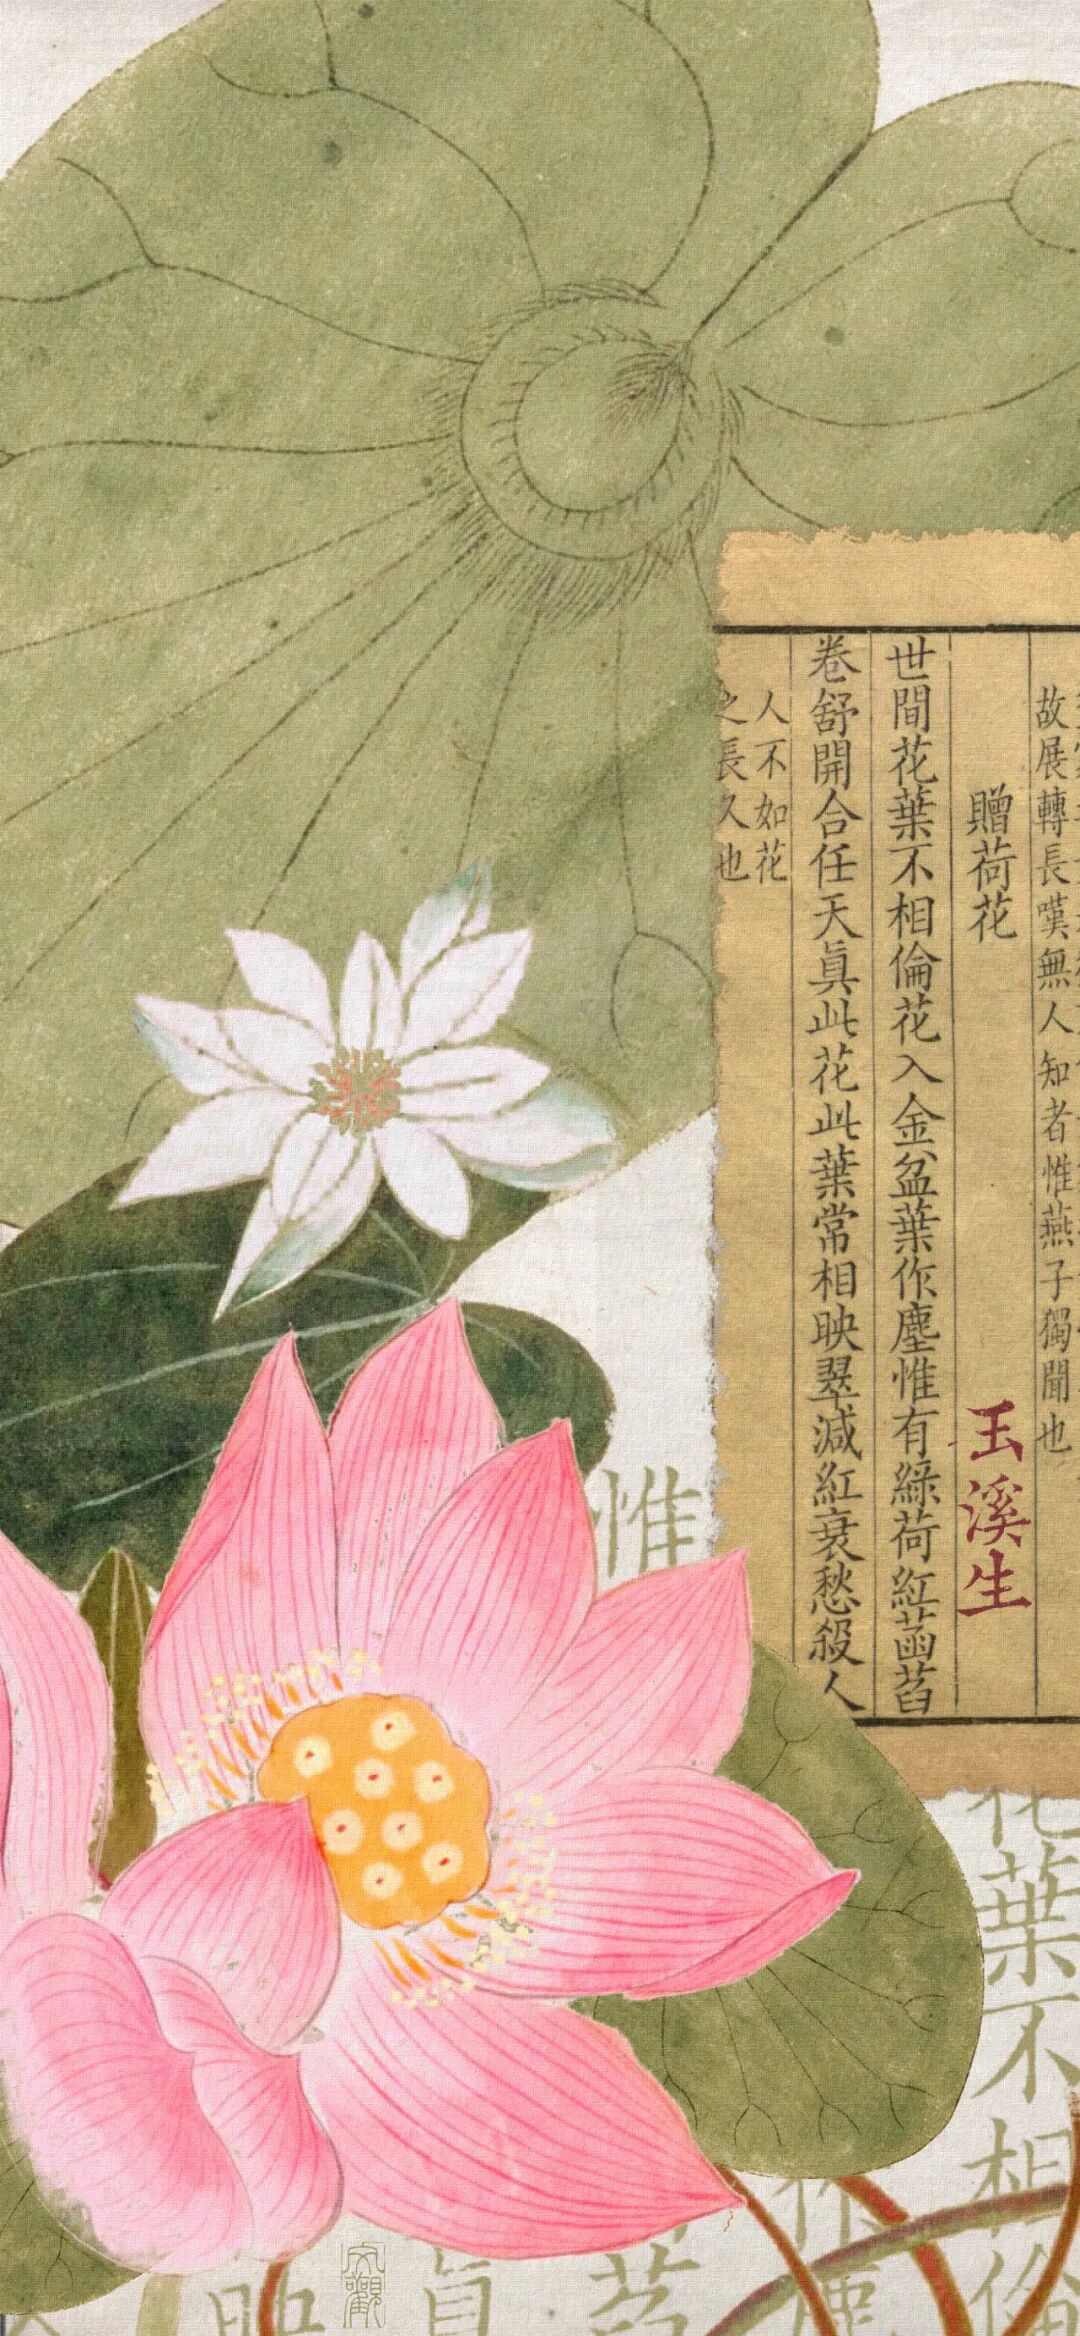 故展轉長嘆無人知者惟燕子獨聞也
贈荷花
玉溪生
世間花葉不相倫花入金盆葉作塵惟有綠荷紅菡萏
卷舒開合任天真此花此葉常相映翠減紅衰愁殺人
人不如花
之長久也
惟
花葉不相倫